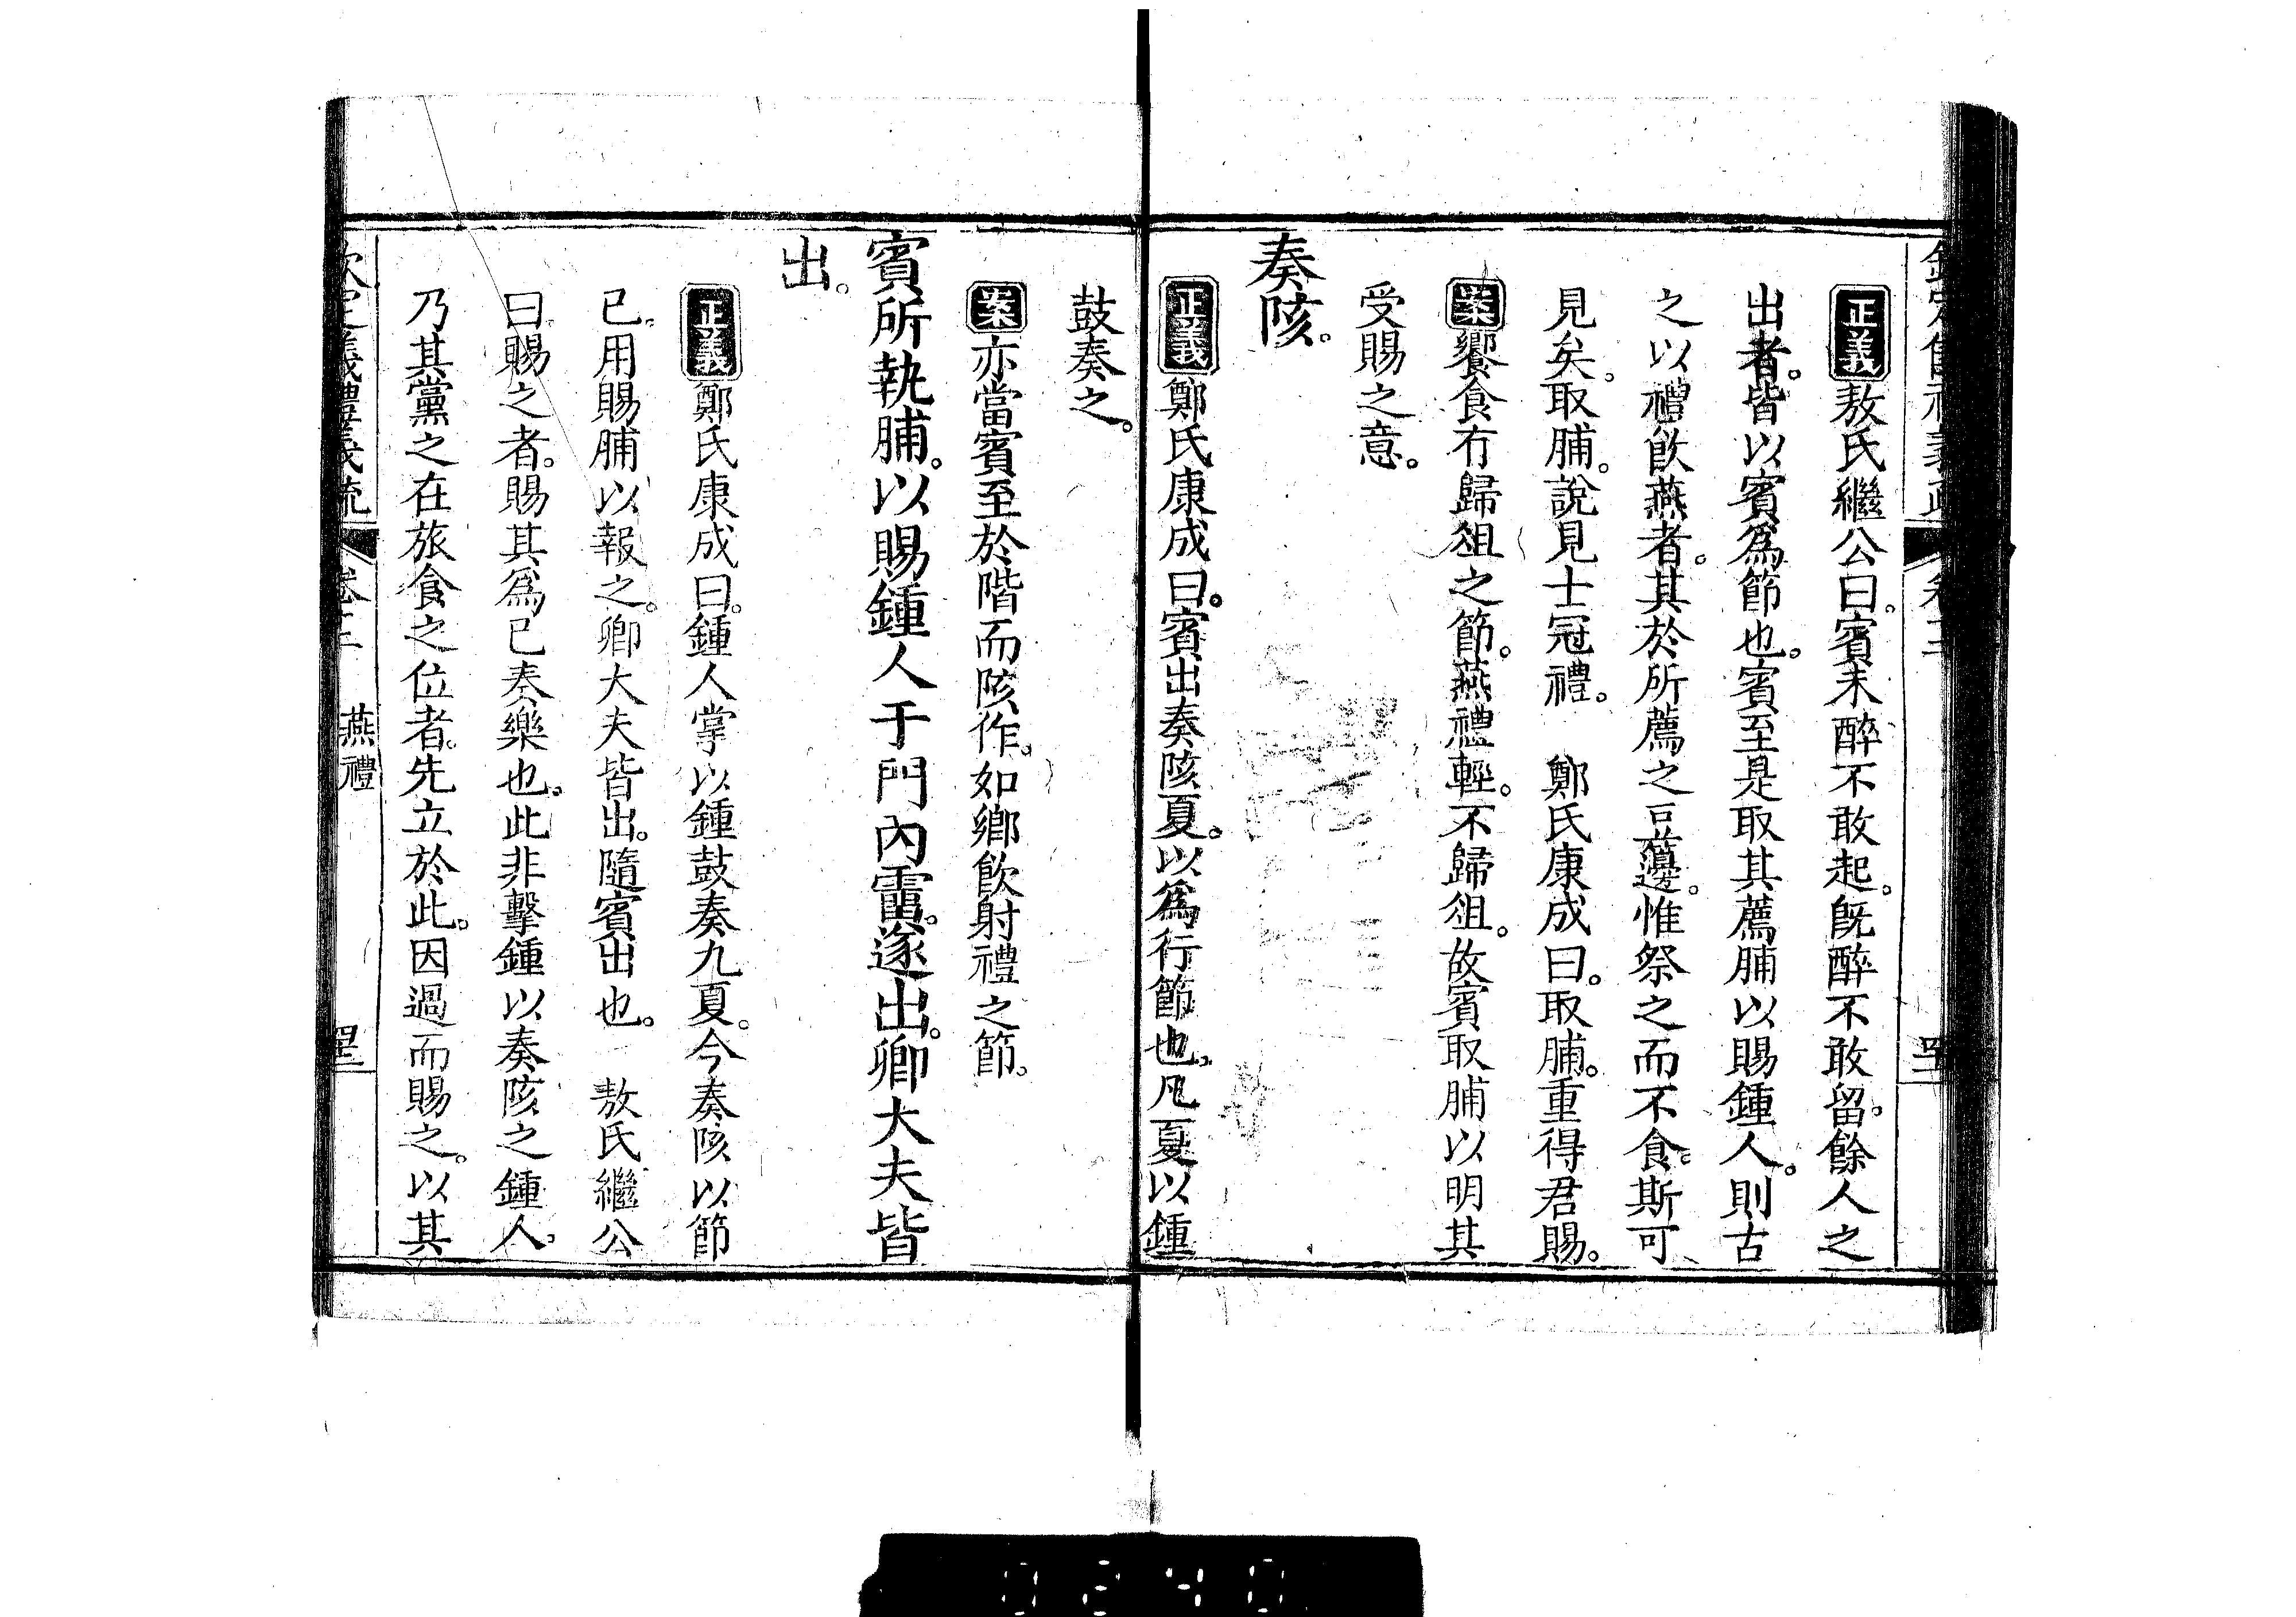 正義敖氏繼公曰。賓未醉不敢起。旣醉不敢留。餘人之
出者。皆以賓爲節也。賓至是取其薦脯以賜鍾人。則古
之以禮飲燕者。其於所薦之豆籩。惟祭之而不食。斯可
見矣。取脯。說見士冠禮。　鄭氏康成曰。取脯。重得君賜。
案饗食有歸俎之節。燕禮輕。不歸俎。故賓取脯以明其
受賜之意。
奏陔。
正義鄭氏康成曰。賓出奏陔夏。以爲行節也。凡夏以鍾
鼓奏之。
案亦當賓至於階而陔作。如鄉飲射禮之節。
賓所執脯。以賜鍾人于門內霤。遂出。卿大夫皆
出。
正義鄭氏康成曰。鍾人掌以鍾鼓奏九夏。今奏陔以節
已。用賜脯以報之。卿大夫皆出。隨賓出也。　敖氏繼公
曰。賜之者。賜其爲已奏樂也。此非擊鍾以奏陔之鍾人。
乃其黨之在旅食之位者。先立於此。因過而賜之。以其
燕禮